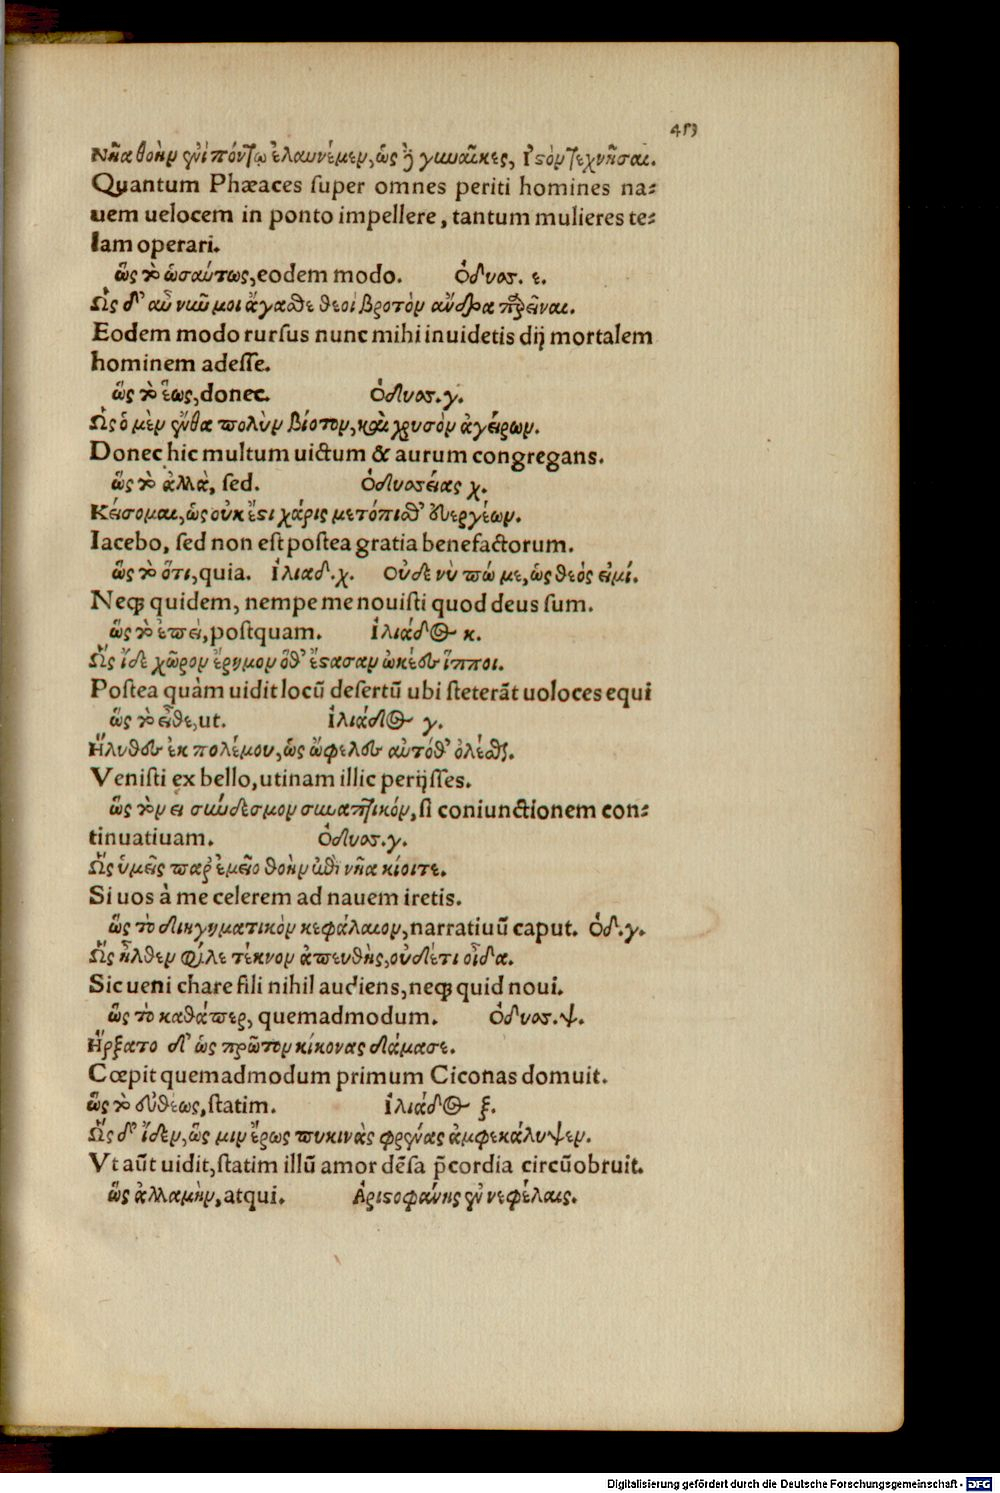 453
Νῆα θοὴν ἐνὶ πόντῳ ἐλαυνέμεν, ὣς ἢ γυναῖκες, ἱστὸν τεχνῆσαι.
Quantum Phæaces super omnes periti homines na-
uem uelocem in ponto impellere, tantum mulieres te-
lam operari.
ὣς τὸ ὡσαύτως, eodem modo. Ὀδυσσ. ε.
Ὣς δ' αὖ νῦν μοι ἄγασθε θεοὶ βροτὸν ἄνδρα παρεῖναι.
Eodem modo rursus nunc mihi inuidetis dij mortalem
hominem adesse.
ὣς τὸ ἕως, donec. Ὀδυσσ. γ.
Ὣς ὁ μὲν ἔνθα πολὺν βίοτον, καὶ χρυσὸν ἀγείρων.
Donec hic multum uictum & aurum congregans.
ὣς τὸ ἀλλὰ, sed. Ὀδυσσείας χ.
Κείσομαι, ὡς οὐκ ἔστι χάρις μετόπισθ' εὐεργέων.
Iacebo, sed non est postea gratia benefactorum.
ὣς τὸ ὅτι, quia. Ἰλιάδ. χ. Οὐδε νὺ πώ με, ὡς θεός εἰμί.
Neq; quidem, nempe me nouisti quod deus sum.
ὣς τὸ ἐπεὶ, postquam. Ἰλιάδος κ.
Ὣς ἴδε χῶρον ἔρημον ὅθ' ἔστασαν ὠκέες ἵπποι.
Postea quàm uidit locū desertū ubi steterāt uoloces equi
ὣς τὸ εἶθε, ut. Ἰλιάδος γ.
Ἤλυθες ἐκ πολέμου, ὡς ὤφελες αὐτόθ' ὀλέσθαι.
Venisti ex bello, utinam illic perijsses.
ὣς τὸν ει σύνδεσμον συναπτικόν, si coniunctionem con-
tinuatiuam. Ὀδυσσ. γ.
Ὣς ὑμεῖς παρ' ἐμεῖο θοὴν ἐπὶ νῆα κίοιτε.
Si uos à me celerem ad nauem iretis.
ὣς τὸ διηγηματικὸν κεφάλαιον, narratiuū caput. Ὀδ. γ.
Ὣς ἦλθεν φίλε τέκνον ἀπευθὴς, οὐδέτι οἶδα.
Sic ueni chare fili nihil audiens, neq; quid noui.
ὣς τὸ καθάπερ, quemadmodum. Ὀδυσσ. ψ.
Ἤρξατο δ' ὡς πρῶτον κίκονας δάμασε.
Cœpit quemadmodum primum Ciconas domuit.
ὣς τὸ εὐθέως, statim. Ἰλιάδος ξ.
Ὣς δ' ἴδεν, ὥς μιν ἔρως πυκινὰς φρένας ἀμφεκάλυψεν.
Vt aūt uidit, statim illū amor dēsa p̄cordia circūobruit.
ὣς ἀλλαμὴν, atqui. Ἀριστοφάνης ἐν νεφέλαις.
Digitalisierung gefördert durch die Deutsche Forschungsgemeinschaft - DFG